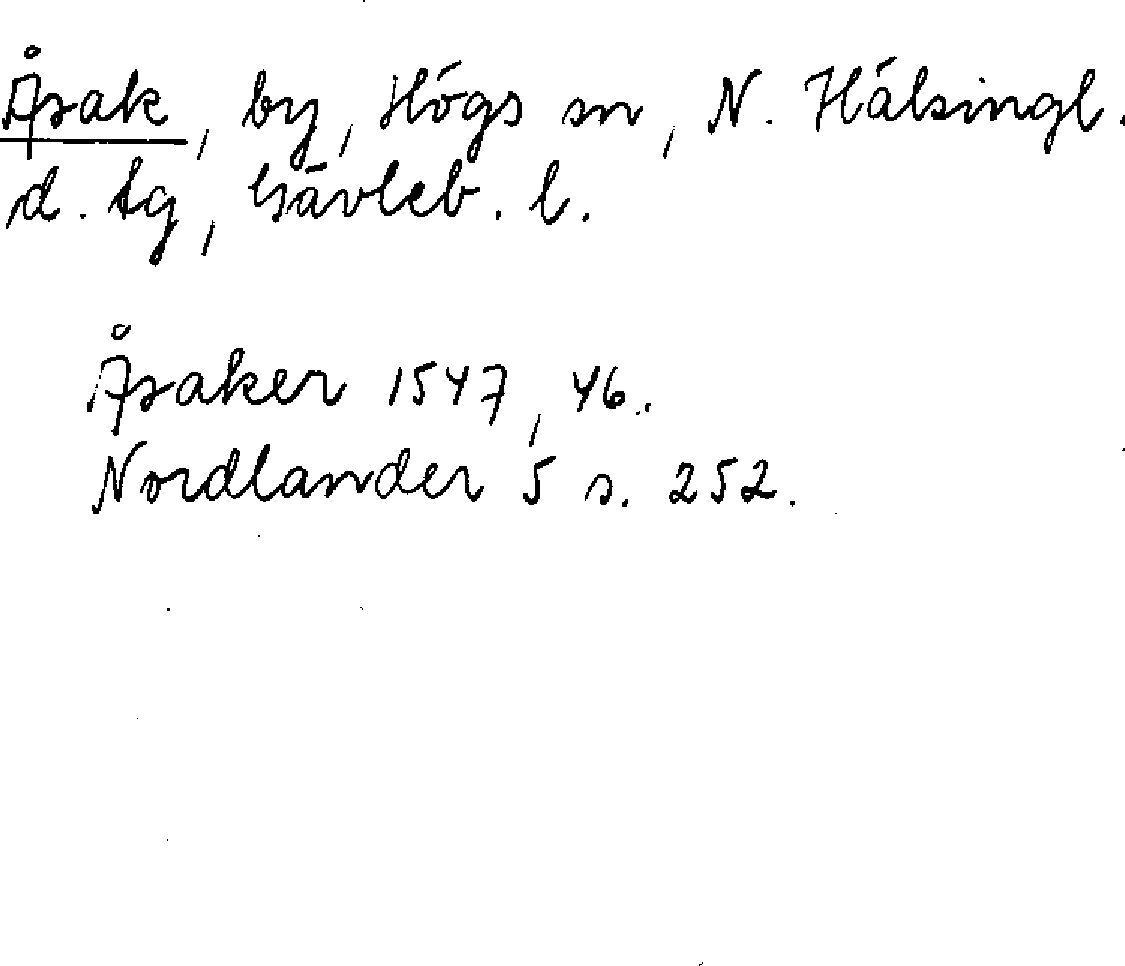 Åsak, by, Högs sn, N. Hälsingl.
d. tg, Gävleb. l.
Åsaker 1547, 46.
Nordlander 5 s. 252.